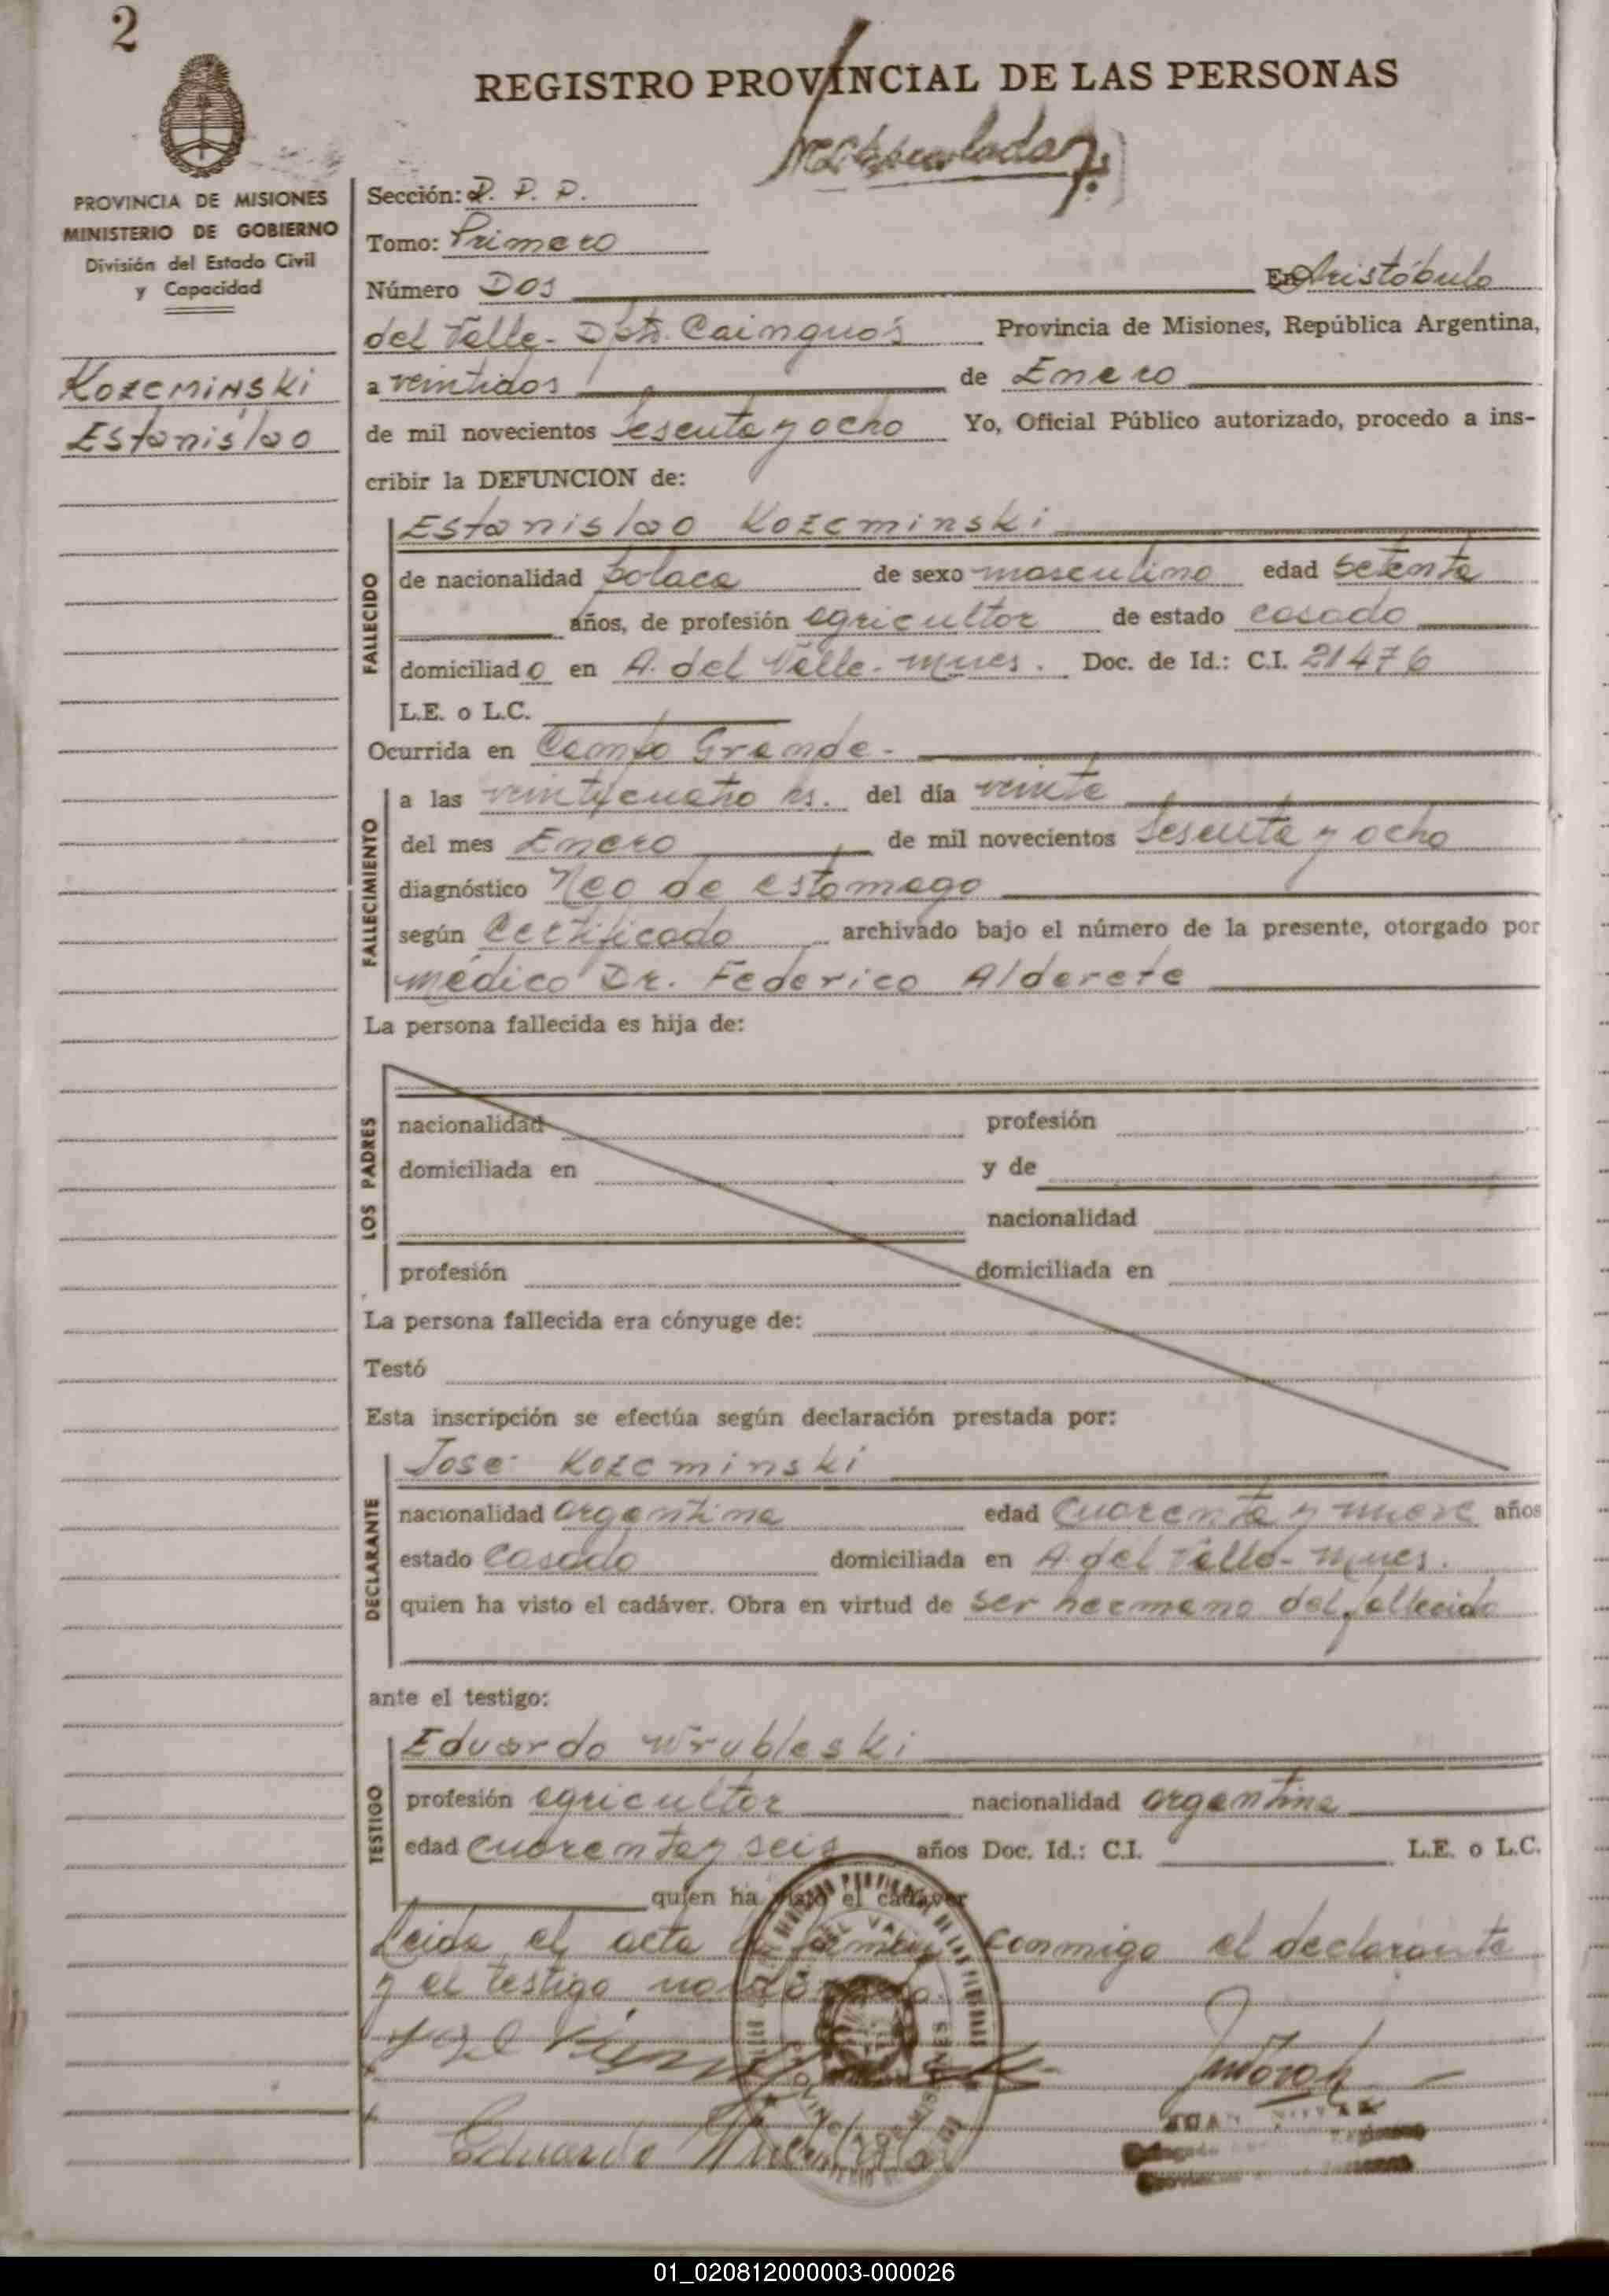 2
REGISTRO PROVINCIAL DE LAS PERSONAS
PROVINCIA DE MISIONES
MINISTERIO DE GOBIERNO
División del Estado Civil
y Capacidad
Kozcminski
Estanislao
Sección: D. P. P.
Tomo: Primero
Número Dos En Aristóbulo
del Valle - Dpto. Cainguás Provincia de Misiones, República Argentina,
a veintidos de Enero
de mil novecientos Sesenta y ocho Yo, Oficial Público autorizado, procedo a ins-
cribir la DEFUNCION de:
FALLECIDO
Estanislao Kozcminski
de nacionalidad polaca de sexo masculino edad setenta
años, de profesión agricultor de estado casado
domiciliado en A. del Valle - Mnes. Doc. de Id.: C.I. 21476
L.E. o L.C.
Ocurrida en Campo Grande -
FALLECIMIENTO
a las veintycuatro hs. del día veinte
del mes Enero de mil novecientos Sesenta y ocho
diagnóstico Neo de estomago
según Certificado archivado bajo el número de la presente, otorgado por
médico Dr. Federico Alderete
La persona fallecida es hija de:
LOS PADRES
nacionalidad profesión
domiciliada en y de
nacionalidad
profesión domiciliada en
La persona fallecida era cónyuge de:
Testó
Esta inscripción se efectúa según declaración prestada por:
DECLARANTE
José Kozcminski
nacionalidad argentina edad Cuarenta y nueve años
estado Casado domiciliada en A. del Valle - Mnes.
quien ha visto el cadáver. Obra en virtud de ser hermano del fallecido
ante el testigo:
TESTIGO
Eduardo Wrubleski
profesión agricultor nacionalidad argentina
edad cuarenta y seis años Doc. Id.: C.I. L.E. o L.C.
quien ha visto el cadáver
Leida el acta la firman conmigo el declarante
y el testigo
Eduardo
JUAN
01_020812000003-000026